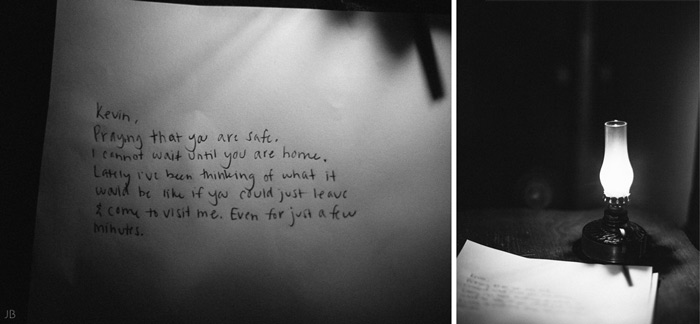 Kevin,
Praying that you are safe.
I cannot wait until you are home.
Lately i've been thinking of what it
would be like if you could just leave
& come to visit me. Even for just a few
minutes.
JB